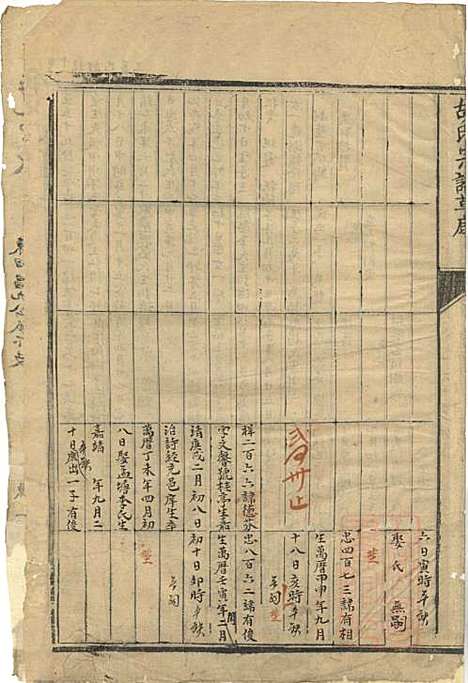 胡氏宗譜草底
六日寅時卒缺
娶氏 無嗣
忠四百七三諱有相
生萬曆甲申年九月
十八日亥時卒缺
忠八百六二諱有俊
生萬曆壬寅年二月
初十日卯時卒缺
祥二百六六諱德芬
字文馨號桂亭生嘉
靖庚戌二月初八日
治詩經充邑庠生卒
萬曆丁未年四月初
八日娶孟塘李氏生
嘉靖 年九月二
十日 出一子有俊